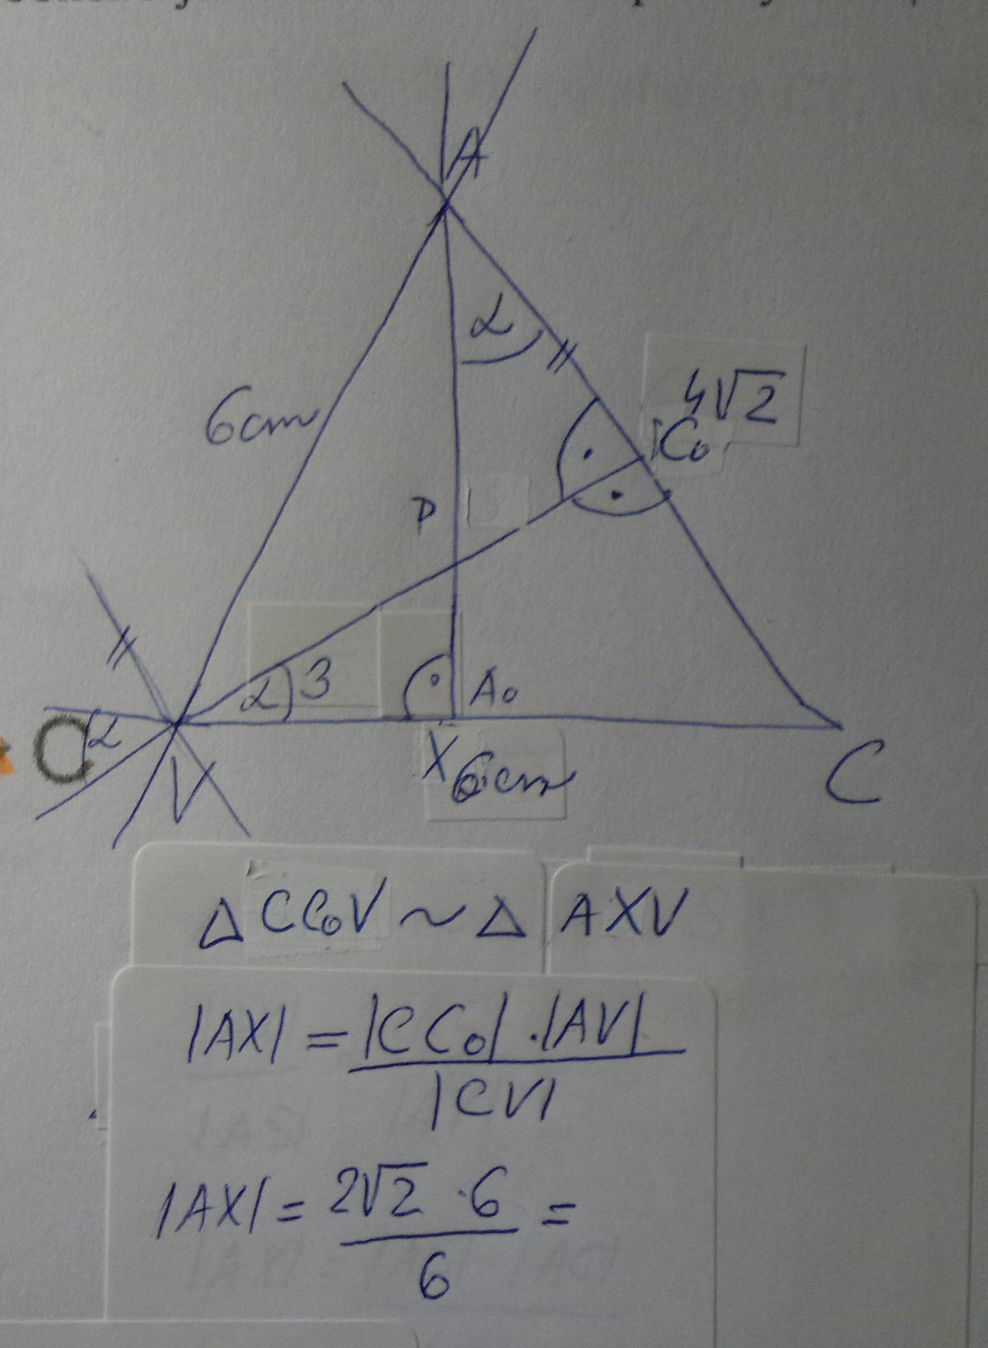 A
α
4√2
C₀
6cm
P
3
α
A₀
α
X
6cm
V
C
Δ CC₀V ~ Δ AXV
|AX| = |CC₀| · |AV| / |CV|
|AX| = 2√2 · 6 / 6 =